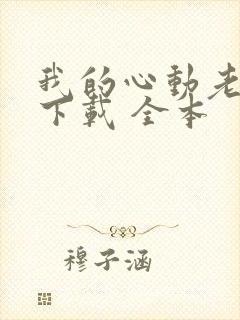 我的心動老
下載 全本
穆子涵